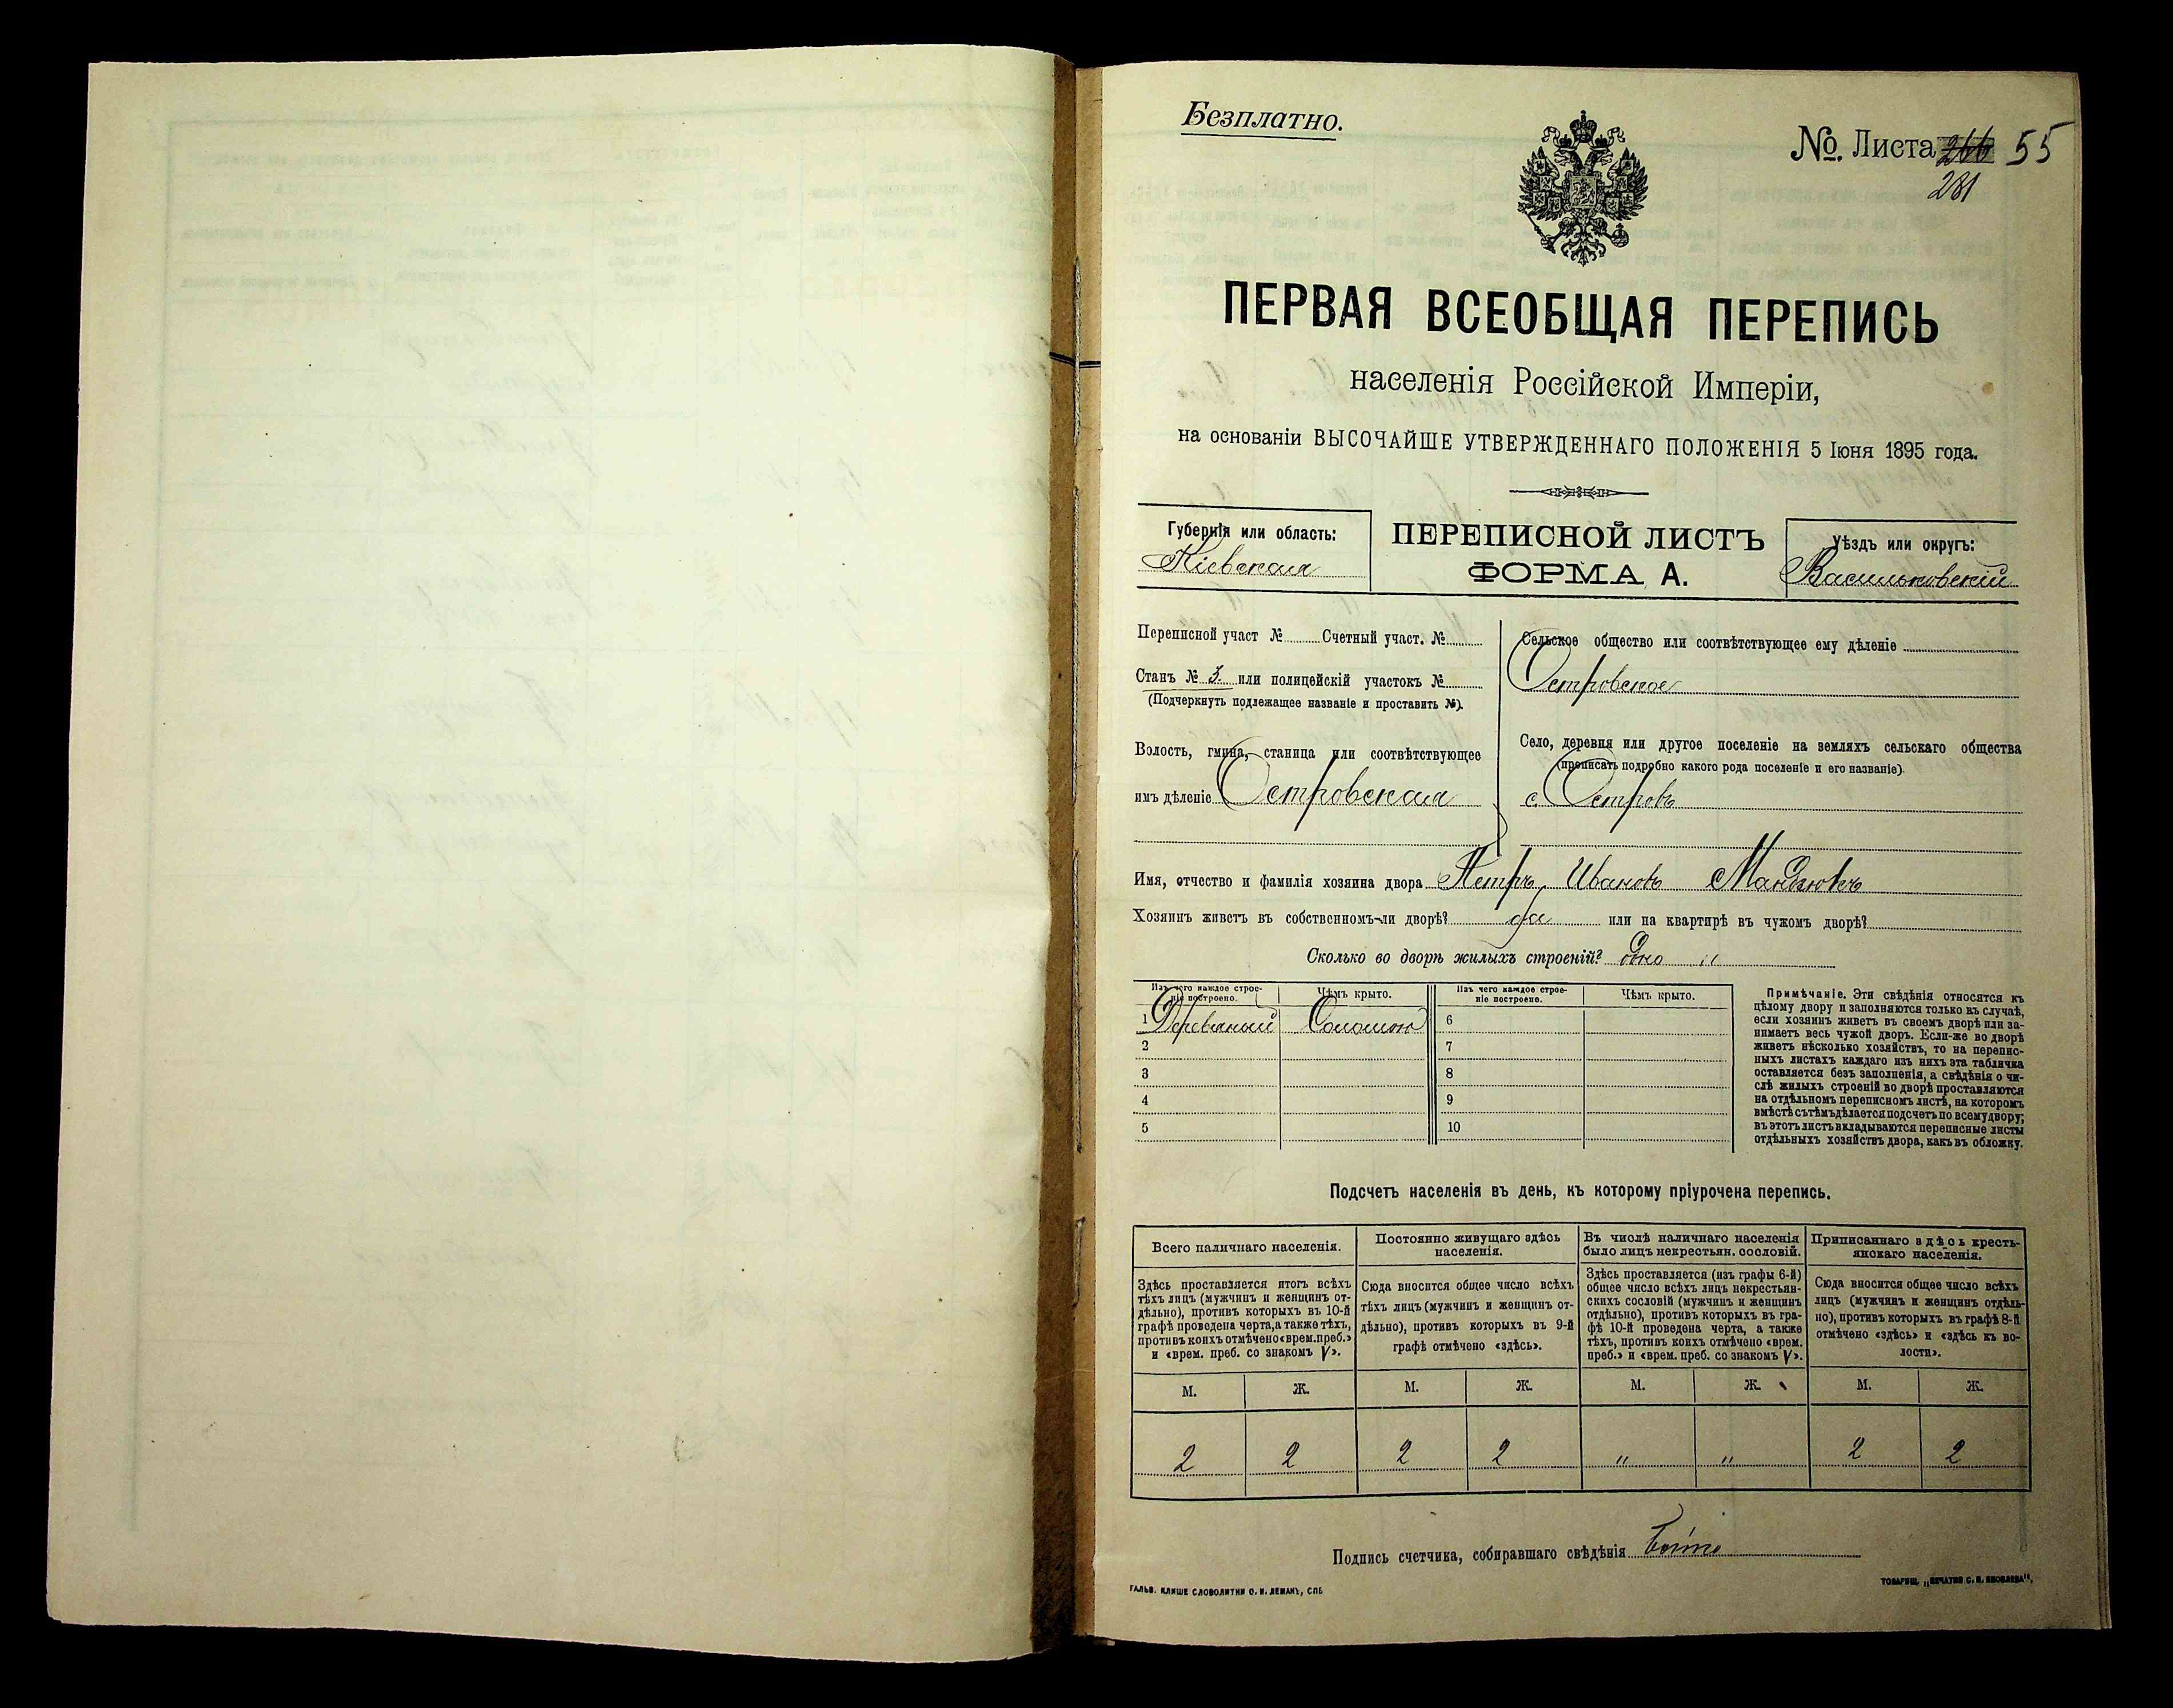 Безплатно.
№. Листа 266 55
281
ПЕРВАЯ ВСЕОБЩАЯ ПЕРЕПИСЬ
населенія Россійской Имперіи,
на основаніи ВЫСОЧАЙШЕ УТВЕРЖДЕННАГО ПОЛОЖЕНІЯ 5 Іюня 1895 года.
Губернія или область:
Кіевская
ПЕРЕПИСНОЙ ЛИСТЪ
ФОРМА А.
Уѣздъ или округъ:
Васильковскій
Переписной участ № Счетный участ. №
Станъ № 3. или полицейскій участокъ №
(Подчеркнуть подлежащее названіе и проставить №).
Волость, гмина, станица или соотвѣтствующее
имъ дѣленіе Островская
Сельское общество или соотвѣтствующее ему дѣленіе
Островское
Село, деревня или другое поселеніе на земляхъ сельскаго общества
(прописать подробно какого рода поселеніе и его названіе).
с. Островъ
Имя, отчество и фамилія хозяина двора Петръ Ивановъ
Хозяинъ живетъ въ собственномъ-ли дворѣ? да или на квартирѣ въ чужомъ дворѣ?
Сколько во дворѣ жилыхъ строеній? одно "
Изъ чего каждое строе-
ніе построено.
Чѣмъ крыто.
Изъ чего каждое строе-
ніе построено.
Чѣмъ крыто.
1 Деревяный Соломою 6
2 7
3 8
4 9
5 10
Примѣчаніе. Эти свѣдѣнія относятся къ
цѣлому двору и заполняются только въ случаѣ,
если хозяинъ живетъ въ своемъ дворѣ или за-
нимаетъ весь чужой дворъ. Если-же во дворѣ
живетъ нѣсколько хозяйствъ, то на перепис-
ныхъ листахъ каждаго изъ нихъ эта табличка
оставляется безъ заполненія, а свѣдѣнія о чи-
слѣ жилыхъ строеній во дворѣ проставляются
на отдѣльномъ переписномъ листѣ, на которомъ
вмѣстѣ съ тѣмъ дѣлается подсчетъ по всему двору;
въ этотъ листъ вкладываются переписные листы
отдѣльныхъ хозяйствъ двора, какъ въ обложку.
Подсчетъ населенія въ день, къ которому пріурочена перепись.
Всего наличнаго населенія.
Здѣсь проставляется итогъ всѣхъ
тѣхъ лицъ (мужчинъ и женщинъ от-
дѣльно), противъ которыхъ въ 10-й
графѣ проведена черта, а также тѣхъ,
противъ коихъ отмѣчено «врем. преб.»
и «врем. преб. со знакомъ V».
Постоянно живущаго здѣсь
населенія.
Сюда вносится общее число всѣхъ
тѣхъ лицъ (мужчинъ и женщинъ от-
дѣльно), противъ которыхъ въ 9-й
графѣ отмѣчено «здѣсь».
Въ числѣ наличнаго населенія
было лицъ некрестьян. сословій.
Здѣсь проставляется (изъ графы 6-й)
общее число всѣхъ лицъ некрестьян-
скихъ сословій (мужчинъ и женщинъ
отдѣльно), противъ которыхъ въ гра-
фѣ 10-й проведена черта, а также
тѣхъ, противъ коихъ отмѣчено «врем.
преб.» и «врем. преб. со знакомъ V».
Приписаннаго здѣсь кресть-
янскаго населенія.
Сюда вносится общее число всѣхъ
лицъ (мужчинъ и женщинъ отдѣль-
но), противъ которыхъ въ графѣ 8-й
отмѣчено «здѣсь» и «здѣсь къ во-
лости».
М. Ж. М. Ж. М. Ж. М. Ж.
2 2 2 2 " " 2 2
Подпись счетчика, собиравшаго свѣдѣнія
ГАЛЬВ. КЛИШЕ СЛОВОЛИТНИ О. И. ЛЕМАНЪ, СПБ
ТОВАРИЩ. „ПЕЧАТНЯ С. П. ЯКОВЛЕВА“,